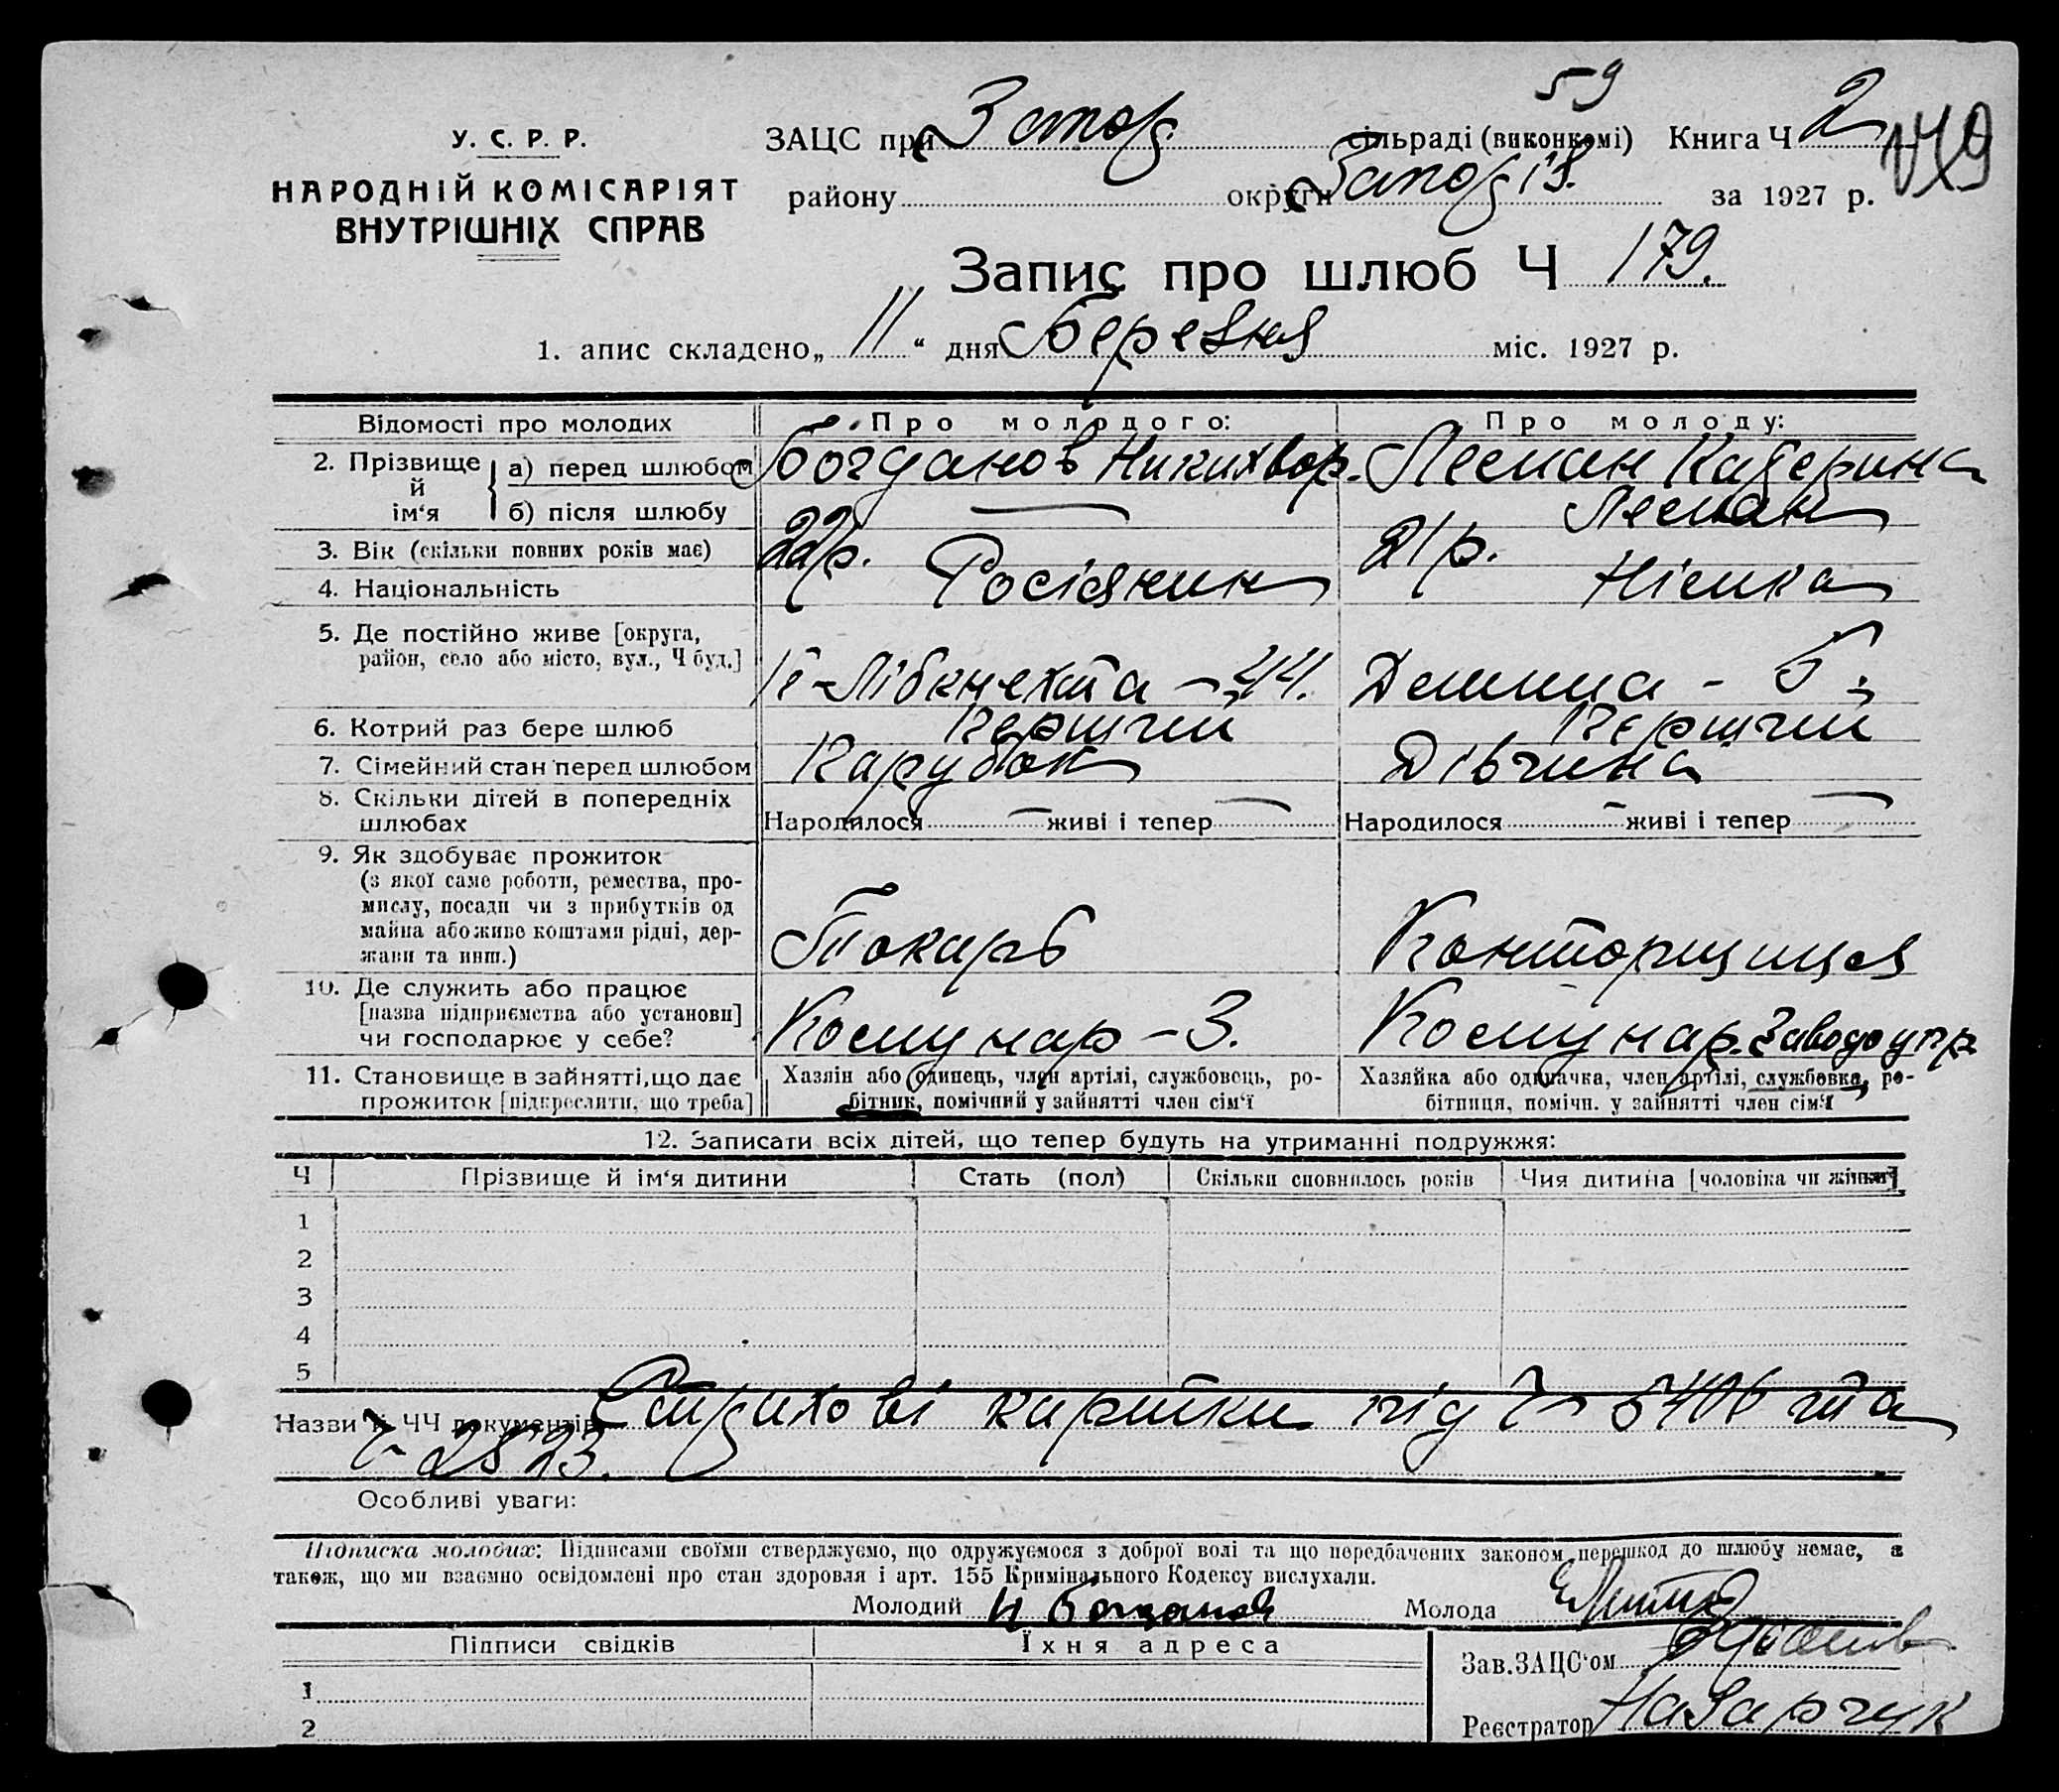 59
У. С. Р. Р.
НАРОДНІЙ КОМІСАРІЯТ
ВНУТРІШНІХ СПРАВ
ЗАЦС при Запор. сільраді (виконкомі) Книга Ч 2
району округи Запоріз. за 1927 р.
179
Запис про шлюб Ч 179.
1. апис складено „ 11 “ дня Березня міс. 1927 р.
Відомості про молодих Про молодого: Про молоду:
2. Прізвище й ім‘я а) перед шлюбом Богданов Никихвор. Леман Катерина
б) після шлюбу — Леман
3. Вік (скільки повних років має) 22 р. 21 р.
4. Національність Росіянин Німка
5. Де постійно живе [округа,
район, село або місто, вул., Ч буд.] К-Лібкнехта - 44. - 5
6. Котрий раз бере шлюб Перший Перший
7. Сімейний стан перед шлюбом Парубок Дівчина
8. Скільки дітей в попередніх
шлюбах Народилося — живі і тепер — Народилося — живі і тепер —
9. Як здобуває прожиток
(з якої саме роботи, ремества, про-
мислу, посади чи з прибутків од
майна або живе коштами рідні, дер-
жави та инш.) Токарь Конторщиця
10. Де служить або працює
[назва підприємства або установи]
чи господарює у себе? Комунар - З. Комунар. Заводоупр.
11. Становище в зайнятті, що дає
прожиток [підкреслити, що треба]
Хазяїн або одинець, член артілі, службовець, ро-
бітник, помічний у зайнятті член сім‘ї
Хазяйка або одиначка, член артілі, службовка, ро-
бітниця, помічн. у зайнятті член сім‘ї
12. Записати всіх дітей, що тепер будуть на утриманні подружжя:
Ч Прізвище й ім‘я дитини Стать (пол) Скільки сповнилось років Чия дитина [чоловіка чи жінки]
1
2
3
4
5
Назви й ЧЧ документів Страхові картки під Ч 5406 та
Ч 2823.
Особливі уваги:
Підписка молодих: Підписами своїми стверджуємо, що одружуємося з доброї волі та що передбачених законом перешкод до шлюбу немає, а
також, що ми взаємно освідомлені про стан здоровля і арт. 155 Кримінального Кодексу вислухали.
Молодий Н Богданов Молода
Підписи свідків Їхня адреса
Зав. ЗАЦС‘ом
1
Реєстратор Назарчук
2